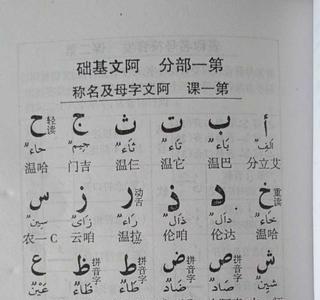 第一部分 阿文基础
第一课 阿文字母及名称
أ ب ت ث ج ح
轻读
أَلِفٌ بَاءٌ تَاءٌ ثَاءٌ جِيمٌ حاءٌ
艾立分 温巴 温它 温仨 吉门 哈温
خ د ذ ر ز س
重读 动舌
خَاءٌ دَالٌ ذَالٌ رَاءٌ زَاىٌ سِينٌ
哈温 达伦 咱伦 拉温 咱云 C一农
ش ص ض ط ظ ع
拼音字 拼音字 拼音字 拼音字
شِينٌ صَادٌ ضَادٌ طَاءٌ ظَاءٌ عَيْنٌ